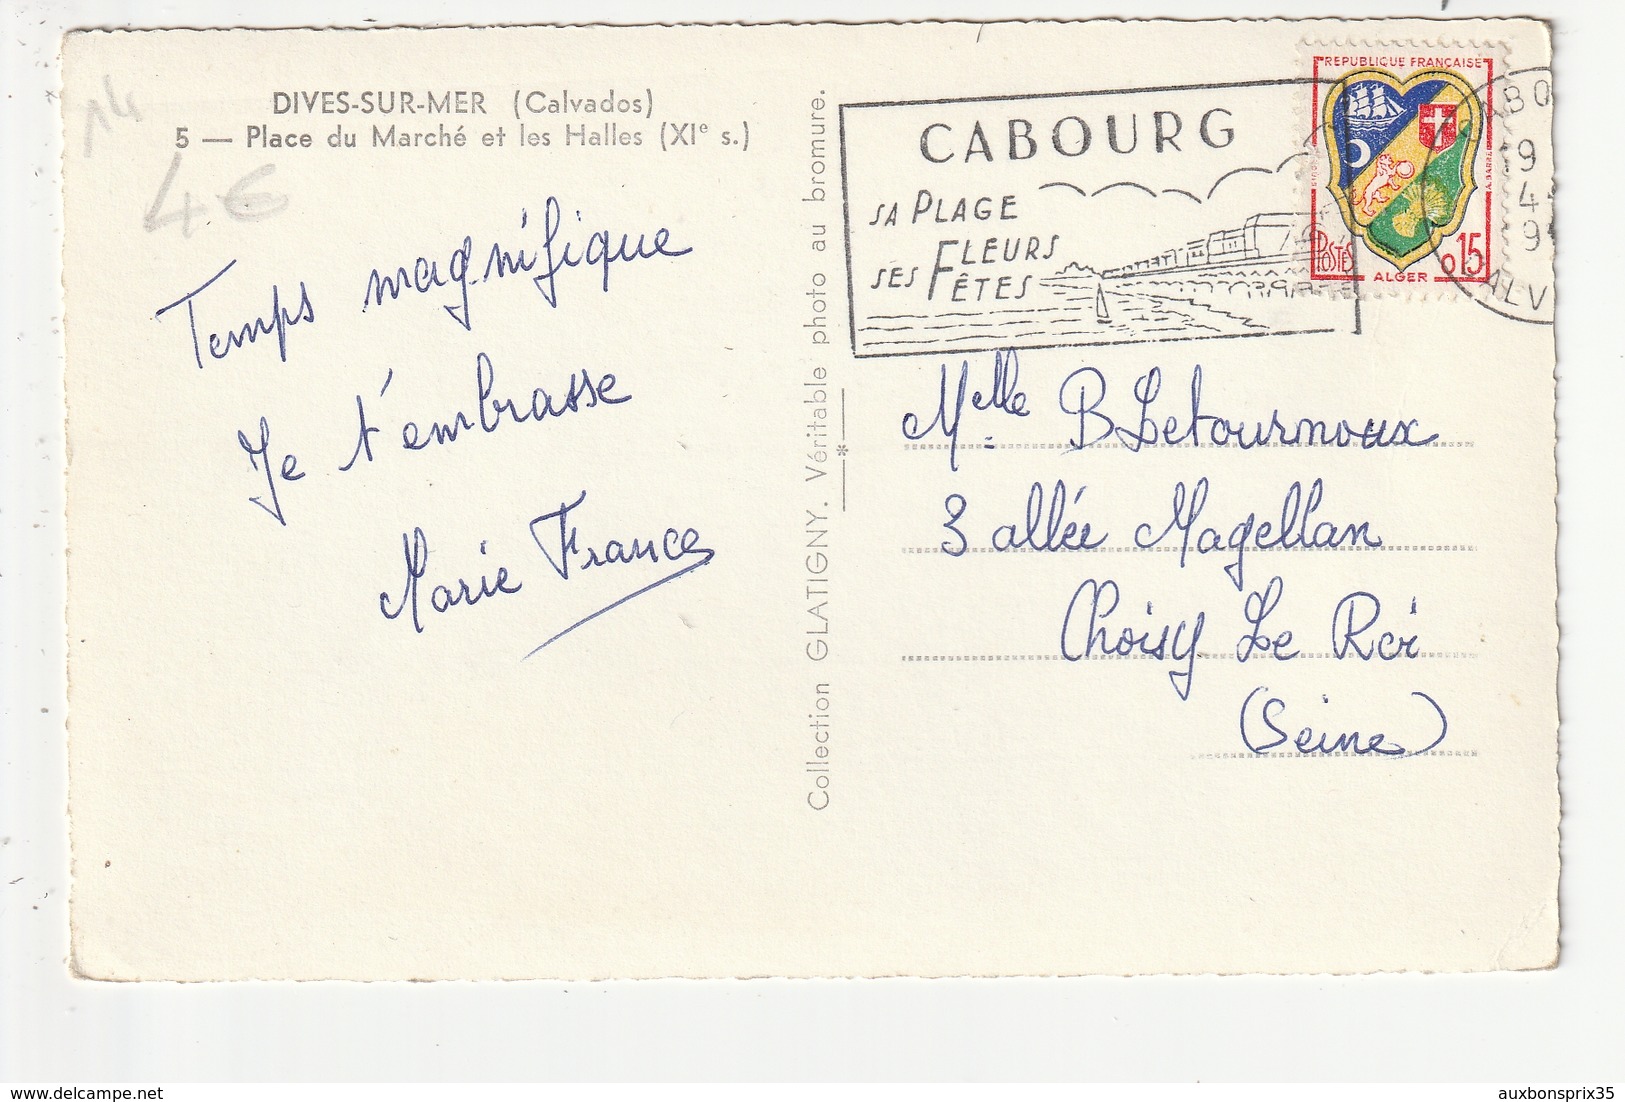 14
DIVES-SUR-MER (Calvados)
5 — Place du Marché et les Halles (XIe s.)
4€
Temps magnifique
Je t'embrasse
Marie France
Collection GLATIGNY. Véritable photo au bromure.
CABOURG
SA PLAGE
SES FLEURS
FÊTES
REPUBLIQUE FRANÇAISE
POSTES
ALGER
0,15
9
4
9
Melle B Letournoux
3 allée Magellan
Choisy Le Roi
(Seine)
auxbonsprix35